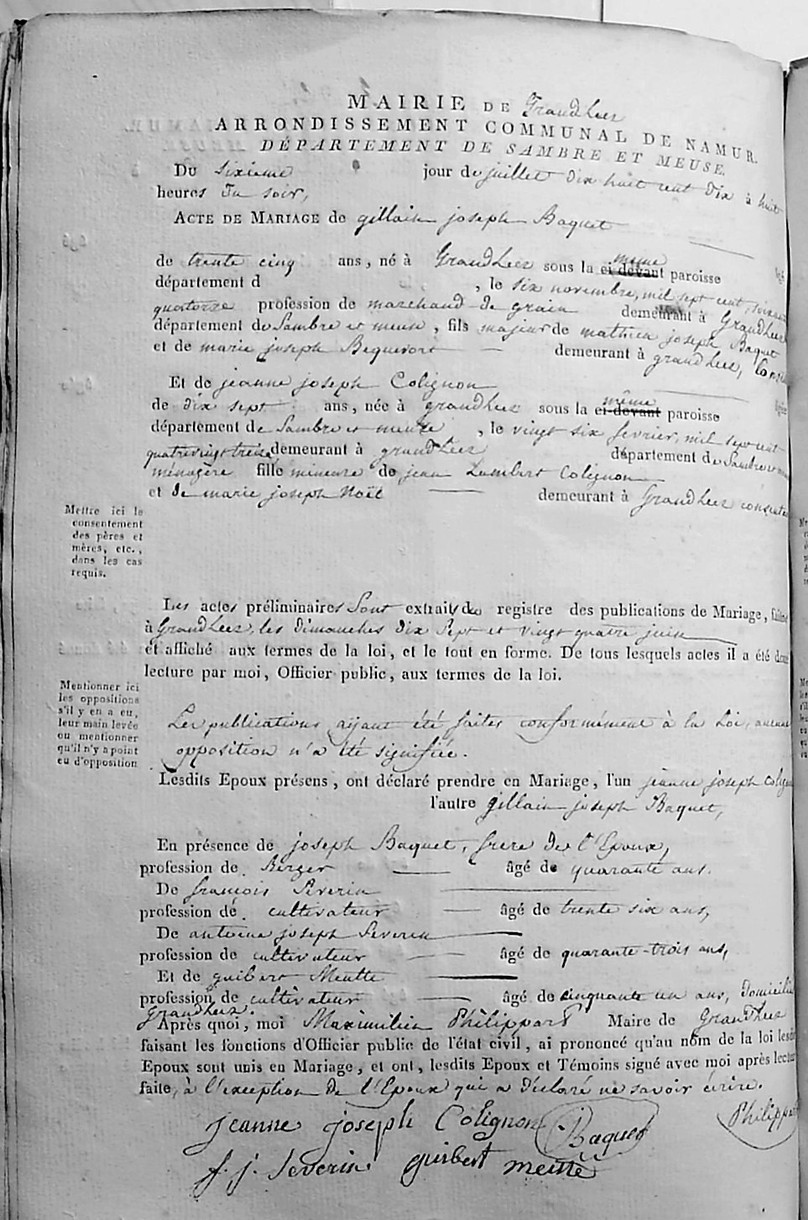 MAIRIE DE GrandLeez
ARRONDISSEMENT COMMUNAL DE NAMUR.
DÉPARTEMENT DE SAMBRE ET MEUSE.
Du sixieme jour de juillet dix huit cent dix à huit
heures du soir,
ACTE DE MARIAGE de gillain joseph Baquet
de trente cinq ans, né à GrandLeez sous la ci-devant même paroisse
département d , le six novembre, mil sept cent
quatorze profession de marchand de grain demeurant à GrandLeez
département de Sambre et meuse, fils majeur de mathieu joseph Baquet
et de marie joseph Bequevort — demeurant à grandLeez,
Et de jeanne joseph Colignon
de dix sept ans, née à grandLeez sous la ci-devant même paroisse
département de Sambre et meuse, le vingt six fevrier, mil sept cent
quatrevingt treize demeurant à grandLeez département de Sambre et
ménagère fille mineure de jean Lambert Colignon
et de marie joseph Noët — demeurant à GrandLeez
Mettre ici le
consentement
des pères et
mères, etc.,
dans les cas
requis.
Les actes préliminaires Sont extraits du registre des publications de Mariage,
à GrandLeez, les dimanches dix Sept et vingt quatre juin
et affiché aux termes de la loi, et le tout en forme. De tous lesquels actes il a été
lecture par moi, Officier public, aux termes de la loi.
Mentionner ici
les oppositions
s'il y en a eu,
leur main levée
ou mentionner
qu'il n'y a point
eu d'opposition
Les publications ayant été faites conformément à la Loi, aucune
opposition n'a été signifiée.
Lesdits Epoux présens, ont déclaré prendre en Mariage, l'un jeanne joseph
l'autre gillain joseph Baquet,
En présence de joseph Baquet, frere de l'Epoux,
profession de Berger — âgé de quarante ans.
De françois Severin
profession de cultivateur — âgé de trente six ans,
De antoine joseph Severin
profession de cultivateur — âgé de quarante-trois ans,
Et de guibert Meutte
profession de cultivateur — âgé de cinquante un ans,
GrandLeez.
Après quoi, moi Maximilien Philippart Maire de GrandLeez
faisant les fonctions d'Officier public de l'état civil, ai prononcé qu'au nom de la loi
Epoux sont unis en Mariage, et ont, lesdits Epoux et Témoins signé avec moi après
faite, à l'exception de l'Epoux qui a déclaré ne savoir écrire.
jeanne joseph Colignon Baquet
f. j. Severin guibert meutte